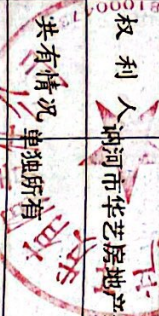 权利人 讷河市华艺房地产
共有情况 单独所有